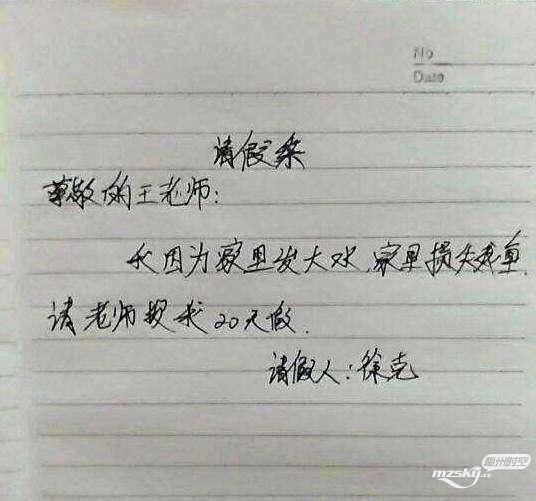 No
Date
请假条
尊敬的王老师:
我因为家里发大水,家里损失惨重.
请老师授我20天假.
请假人:徐克
梅州时空
mzsky.cc